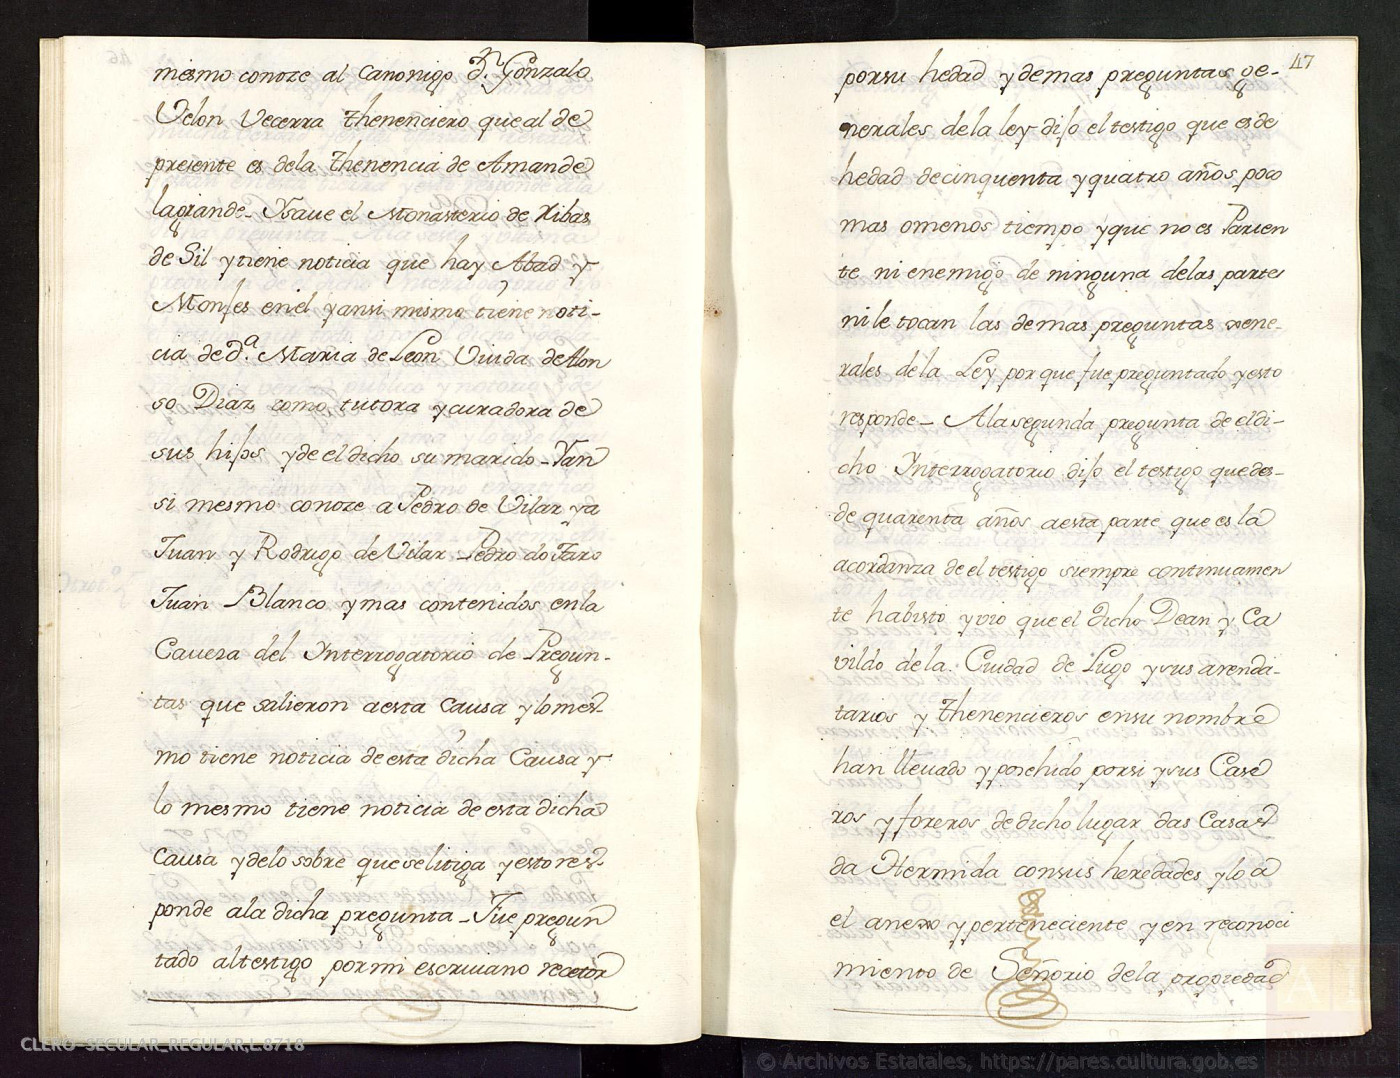 mismo conoze al Canonigo Dn. Gonzalo
Velon Vecerra thenenciero que al de
presente es dela thenencia de Amande
lagrande. Ysaue el Monasterio de Ribas
de Sil y tiene noticia que hay Abad y
Monjes en el yansi mismo tiene noti-
cia de Da. Maria de Leon Viuda de Alon
so Diaz como tutora y curadora de
sus hijos y de el dicho su marido - Yan
si mesmo conoze a Pedro de Vilar ya
Juan y Rodrigo de Vilar Pedro do Faro
Juan Blanco y mas contenidos enla
Caueza del Ynterrogatorio de Pregun-
tas que salieron aesta Causa ylomes-
mo tiene noticia de esta dicha Causa y
lo mesmo tiene noticia de esta dicha
Causa ydelo sobre que selitiga yesto res-
ponde ala dicha pregunta - Fue pregun
tado altestigo pormi escriuano recetor
47
porsu hedad y demas preguntas ge-
nerales dela ley dijo el testigo que es de
hedad de cinquenta y quatro años poco
mas omenos tiempo yque no es Parien
te ni enemigo de ninguna delas partes
nile tocan las demas preguntas gene-
rales dela Ley por que fue preguntado yesto
responde - Ala segunda pregunta de el di-
cho Ynterrogatorio dijo el testigo que des-
de quarenta años aesta parte que es la
acordanza de el testigo siempre continuamen
te habisto yvio que el dicho Dean y Ca
vildo dela Ciudad de Lugo ysus arenda-
tarios y thenencieros ensu nombre
han lleuado y porsi ysus Case
ros y foreros de dicho lugar das Casas
da Hermida consus heredades ylo a
el anexo y perteneciente y en reconoci
miento de Señorio dela propiedad
CLERO-SECULAR_REGULAR,L.8718
© Archivos Estatales, https://pares.cultura.gob.es